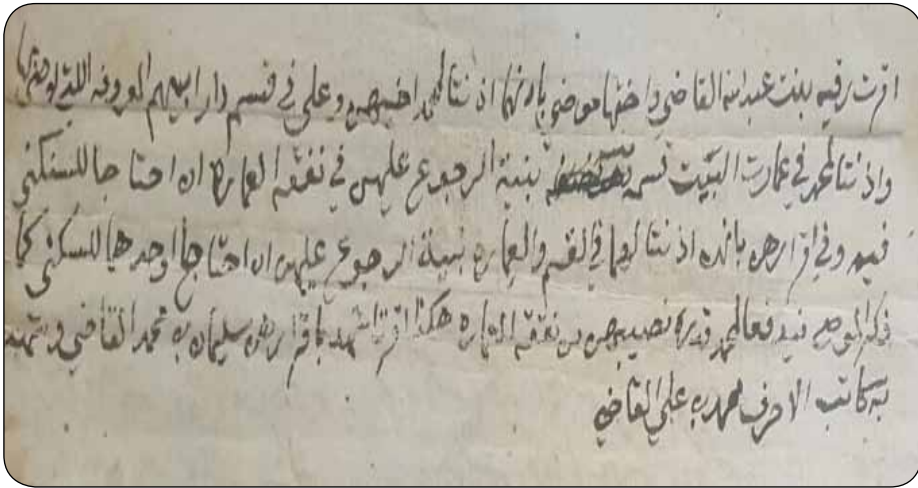 اقرت رقيه بنت عبدالله القاضي واختها موضي بانهما اذنتا لمحمد اخيهن وعلي في قسم دار ابيهم المعروفه اللتي لوضيا
واذنتا لمحمد في عمارت البيت قسمه بنية الرجوع عليهن في نفقة العماره ان احتاجا للسكنى
فيه وفي اقرارهن بانهن اذنتا لهما في القسم والعماره بنية الرجوع عليهن ان احتاجا اوحدهما للسكنى كما
ذكر الموضع فيدفعا لمحمد قدره نصيبهن من نفقة العماره هكذا اقرتا شهد باقرارهن سليمان بن محمد القاضي وشهد
به كاتب الاحرف محمد بن علي القاضي